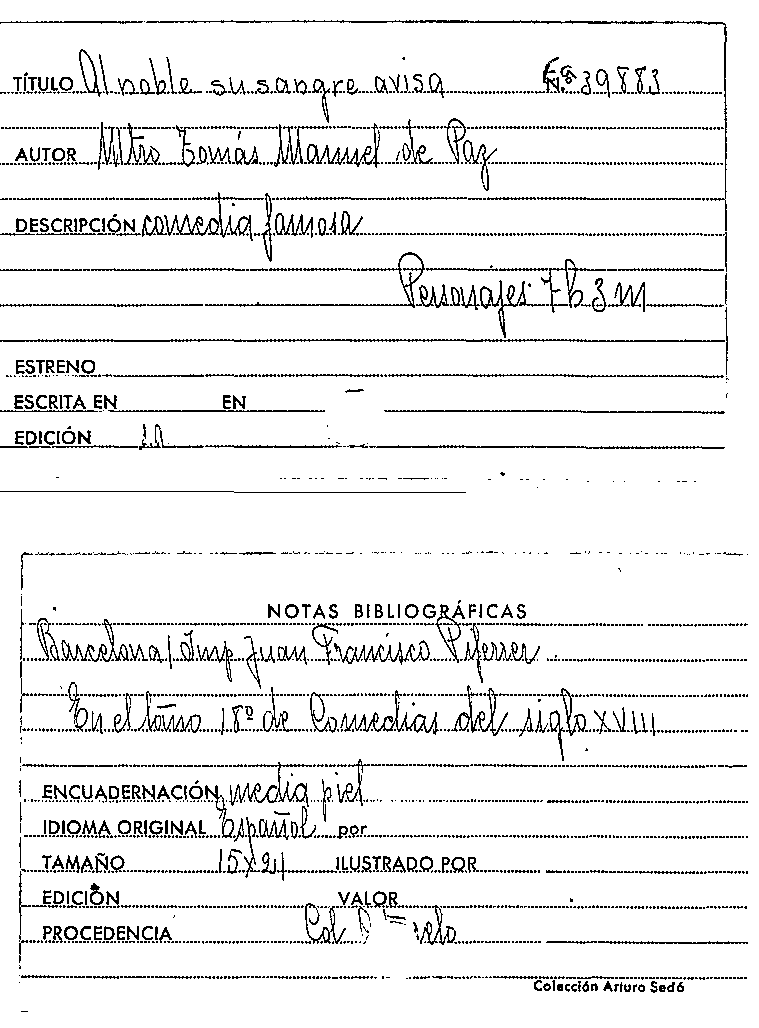 TÍTULO Al noble su sangre avisa N.º 39883
AUTOR Mtro Tomás Manuel de Paz
DESCRIPCIÓN comedia famosa
Personajes 7 h 3 m
ESTRENO
ESCRITA EN EN
EDICIÓN
NOTAS BIBLIOGRÁFICAS
Barcelona/Imp Juan Francisco Piferrer
En el tomo 18º de Comedias del siglo XVIII
ENCUADERNACIÓN media piel
IDIOMA ORIGINAL Español por
TAMAÑO 15x21 ILUSTRADO POR
EDICIÓN VALOR
PROCEDENCIA Col
Colección Arturo Sedó